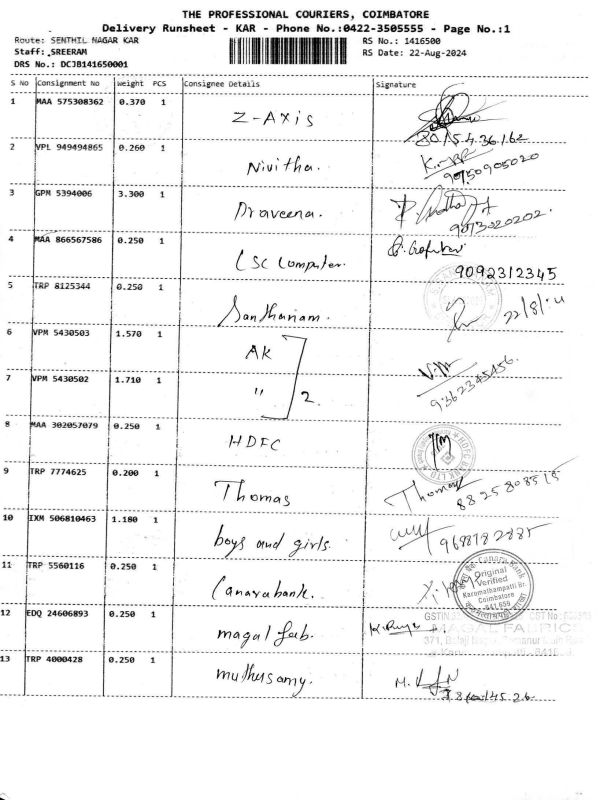 THE PROFESSIONAL COURIERS, COIMBATORE
Delivery Runsheet - KAR - Phone No.:0422-3505555 - Page No.:1
Route: SENTHIL NAGAR KAR RS No.: 1416500
Staff: SREERAM RS Date: 22-Aug-2024
DRS No.: DCJB141650001
S No Consignment No Weight PCS Consignee Details Signature
1 MAA 575308362 0.370 1 Z-Axis
2 VPL 949494865 0.260 1 Nivitha. 9050905020
3 GPM 5394006 3.300 1 Praveena. 9073020202.
4 MAA 866567586 0.250 1 CSC Computer. 9092312345
5 TRP 8125344 0.250 1 Santhanam. 22/8/24
6 VPM 5430503 1.570 1 AK
7 VPM 5430502 1.710 1 " 2. 9362345456.
8 MAA 302057079 0.250 1 HDFC
HDFC BANK LTD.
9 TRP 7774625 0.200 1 Thomas Thomas
10 IXM 506810463 1.180 1 boys and girls.
11 TRP 5560116 0.250 1 Canarabank.
Canara Bank
Original
Verified
Karumathampatti Br.
Coimbatore
641 659
12 EDQ 24606893 0.250 1 magal fab.
GSTIN
MAGAL FABRICS
371,
13 TRP 4000428 0.250 1 muthusamy.